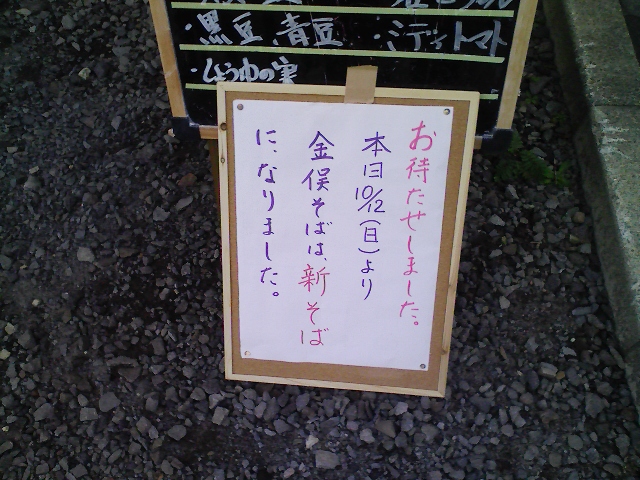 ・黒豆、青豆
・ミディトマト
・しょうゆの実
お待たせしました。
本日10/12(日)より
金俣そばは、新そば
に、なりました。